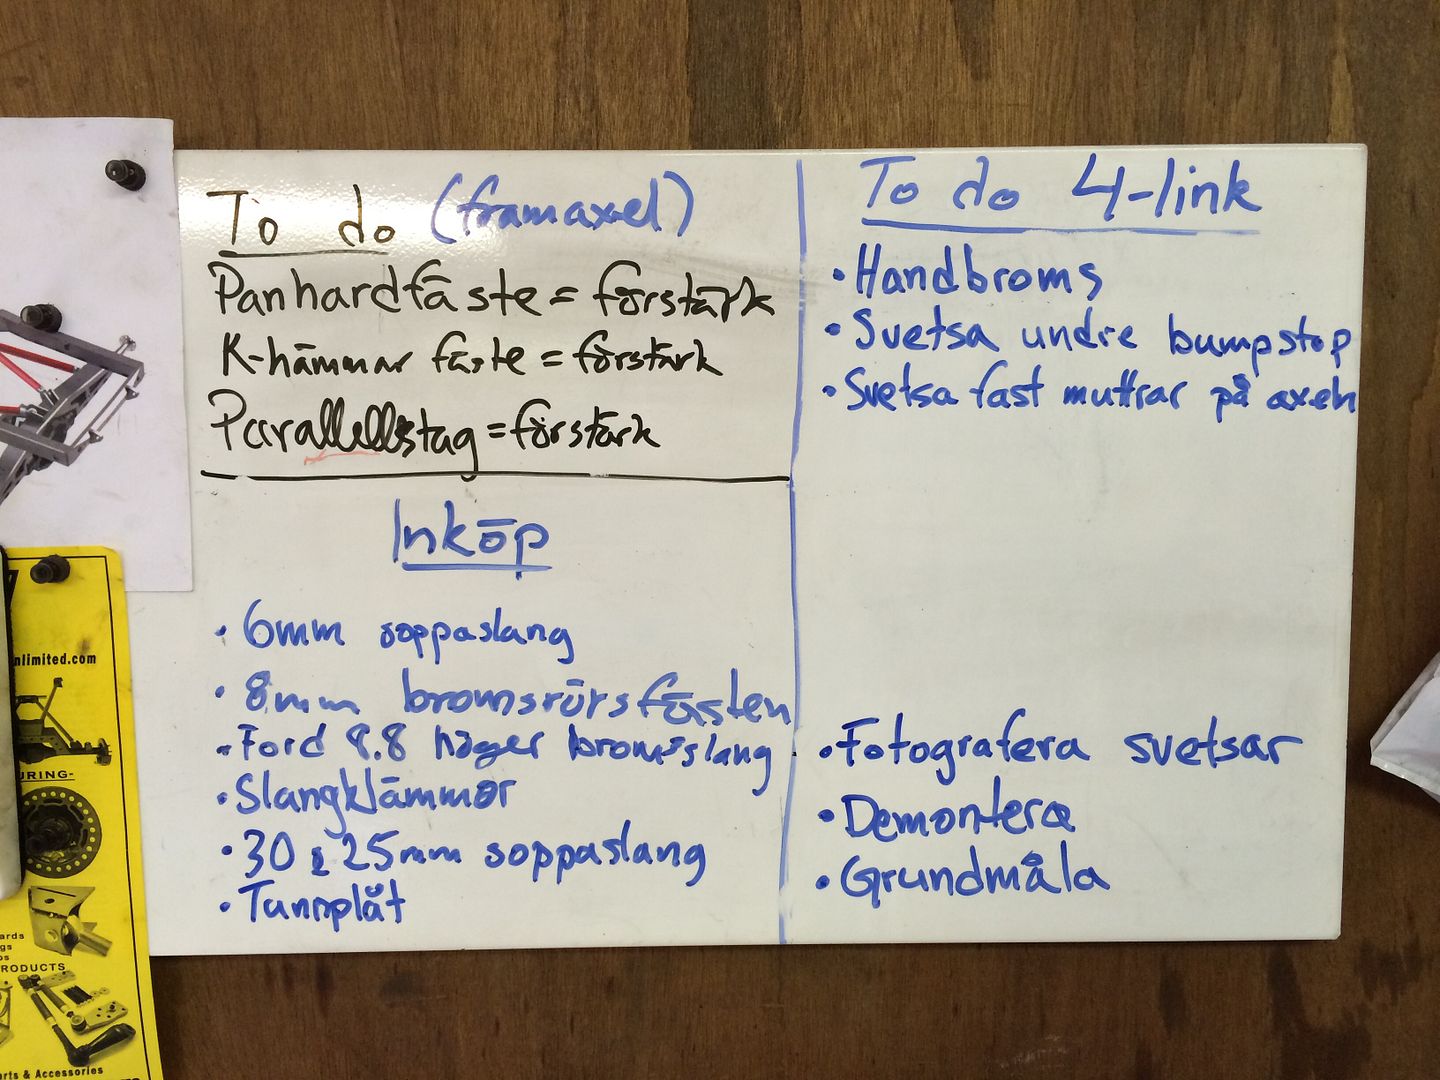 To do (framaxel)
Panhardfäste = förstärk
K-hämmar fäste = förstärk
Parallellstag = förstärk
Inköp
• 6mm soppaslang
• 8mm bromsrörsfästen
• Ford 8.8 höger bromsslang
• Slangklämmor
• 30 & 25mm soppaslang
• Tunnplåt
To do 4-link
• Handbroms
• Svetsa undre bumpstop
• Svetsa fast muttrar på axeln
• Fotografera svetsar
• Demontera
• Grundmåla
nlimited.com
URING-
ards
gs
os
PRODUCTS
rts & Accessories